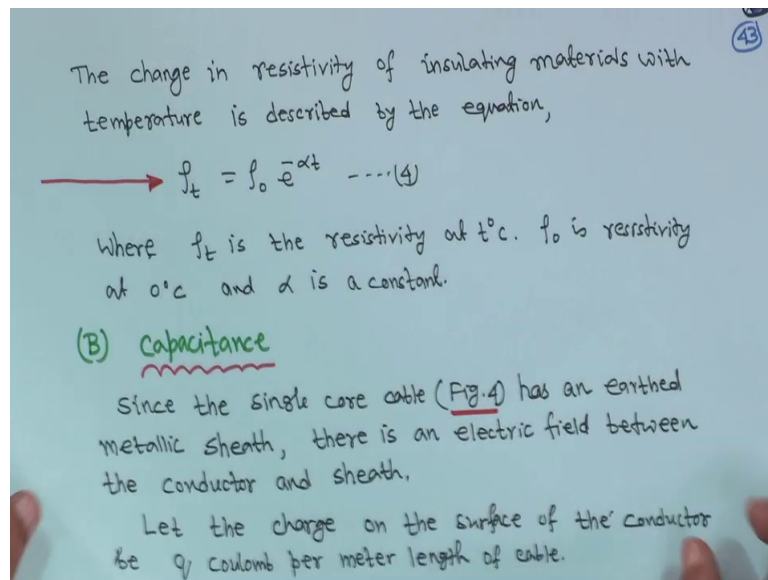 43
The change in resistivity of insulating materials with
temperature is described by the equation,
ρt = ρ₀ e^-αt ----(4)
Where ρt is the resistivity at t°c. ρ₀ is resistivity
at 0°c and α is a constant.
(B) Capacitance
Since the single core cable (Fig.4) has an earthed
metallic sheath, there is an electric field between
the conductor and sheath.
Let the charge on the surface of the conductor
be q coulomb per meter length of cable.